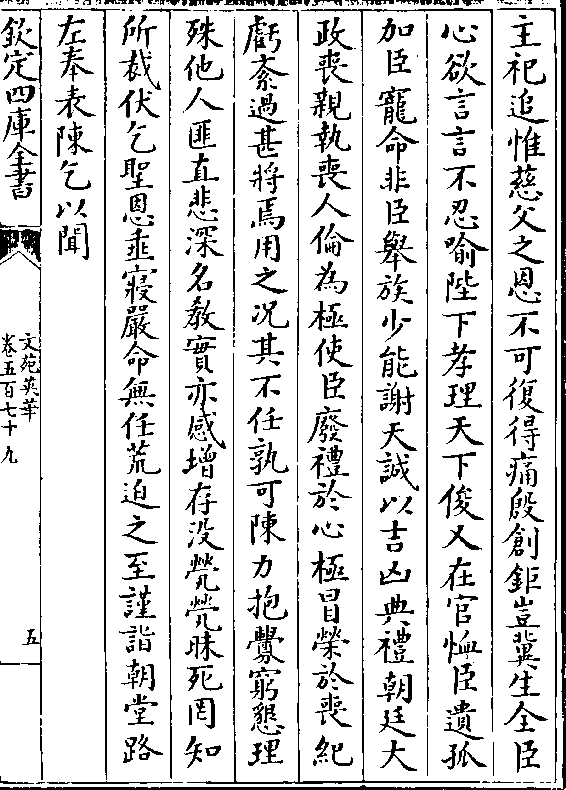 主祀追惟慈父之恩不可復得痛殷創鉅豈冀生全臣
心欲言言不忍喻陛下孝理天下俊乂在官恤臣遺孤
加臣寵命非臣舉族少能謝天誠以吉凶典禮朝廷大
政喪親執喪人倫為極使臣廢禮於心極冒榮於喪紀
虧紊過甚將焉用之况其不任孰可陳力抱釁窮懇理
殊他人匪直悲深名教實亦感增存没煢煢昧死罔知
所裁伏乞聖恩垂寢嚴命無任荒迫之至謹詣朝堂路
左奉表陳乞以聞
欽定四庫全書
文苑英華
卷五百七十九
五